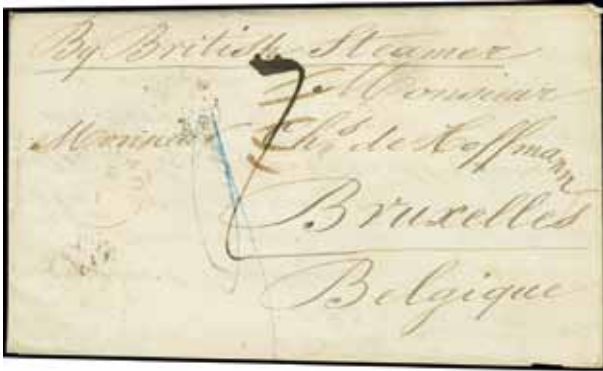 By British Steamer
7
à Monsieur
Monsieur Chs de Hoffmann
Bruxelles
Belgique